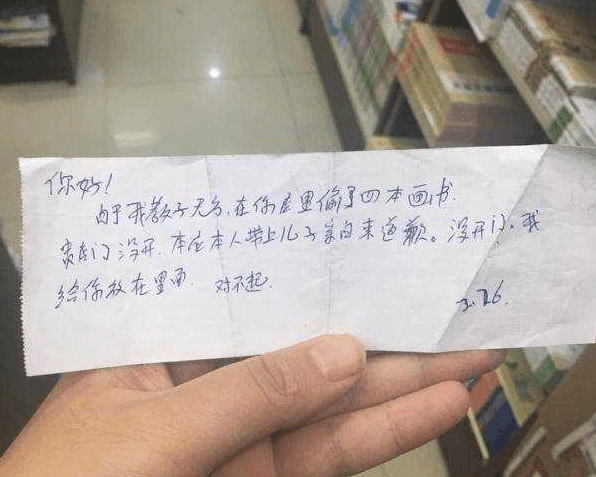 你好!
由于我教子无方,在你店里偷了四本画书.
贵店门没开.本应本人带上儿子亲自来道歉。没开门,我
给你放在里面 对不起.
2.26.